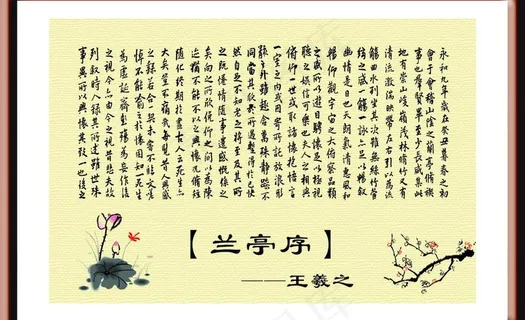 永和九年歲在癸丑暮春之初
會于會稽山陰之蘭亭脩禊
事也群賢畢至少長咸集此
地有崇山峻嶺茂林脩竹又有
清流激湍映帶左右引以為流
觴曲水列坐其次雖無絲竹管
弦之盛一觴一詠亦足以暢叙
幽情是日也天朗氣清惠風和
暢仰觀宇宙之大俯察品類
之盛所以遊目騁懷足以極視
聽之娛信可樂也夫人之相與
俯仰一世或取諸懷抱悟言
一室之内或因寄所託放浪形
骸之外雖趣舍萬殊靜躁不
同當其欣於所遇暫得於己快
然自足不知老之將至及其所
之既惓情隨事遷感慨係之
矣向之所欣俛仰之間以為陳
迹猶不能不以之興懷況脩短
隨化終期於盡古人云死生亦
大矣豈不痛哉每攬昔人興感
之由若合一契未嘗不臨文嗟
悼不能喻之於懷固知一死生
為虛誕齊彭殤為妄作後之
視今亦由今之視昔悲夫故
列叙時人錄其所述雖世殊
事異所以興懷其致一也後之
【兰亭序】
——王羲之